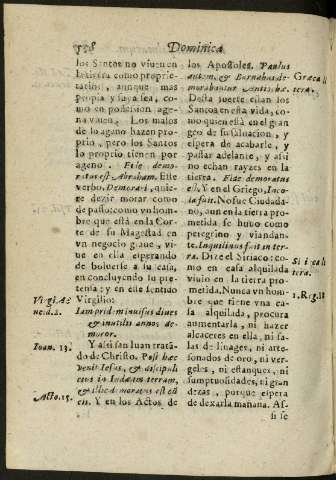 558
Dominica
los Santos no viuen en
la tierra como proprie-
tarios, aunque mas
propia y suya sea, co-
mo en possession age-
na viuen. Los malos
de lo ageno hazen pro-
prio, pero los Santos
lo proprio tienen por
ageno. Fide demo-
ratus est Abraham. Este
verbo, Demorari, quie-
re dezir morar como
de passo: como vn hom-
bre que está en la Corte
de su Magestad en
vn negocio graue, vi-
ue en ella esperando
de boluerse a su casa,
en concluyendo lo pre-
tenia: y en este sentido
Virgilio:
Iampridem inuisus diues
& inutilis annos de-
moror.
Y assi san Iuan tratã-
do de Christo. Post hæc
venit Iesus, & discipuli
eius in Iudæam terram,
& illic demoratus est cũ
eis. Y en los Actos de
Virgi. Æ-
neid. 2.
Ioan. 13.
Acto. 15.
los Apostoles. Paulus
autem, & Barnabas de-
morabantur Antiochiæ.
Desta suerte estan los
Santos en esta vida, co-
mo quien està en el gran
geo de su saluacion, y
espera de acabarle, y
passar adelante, y assi
no echan rayzes en la
tierra. Fide demoratus
est. Y en el Griego, Inco-
la fuit. No fue Ciudada-
no, aun en la tierra pro-
metida se huuo como
peregrino y viandan-
te. Inquilinus fuit in ter-
ra. Dize el Siriaco: co-
mo en casa alquilada
viuio en la tierra pro-
metida. Nunca vn hom-
bre que tiene vna ca-
sa alquilada, procura
aumentarla, ni hazer
alcaceres en ella, ni fa-
las de linages, ni arte-
sonados de oro, ni ver-
geles, ni estanques, ni
sumptuosidades, ni gran
dezas, porque espera
de dexarla mañana. As-
si se
Græca li
tera.
Si i ca li
tera.
1. Reg. II